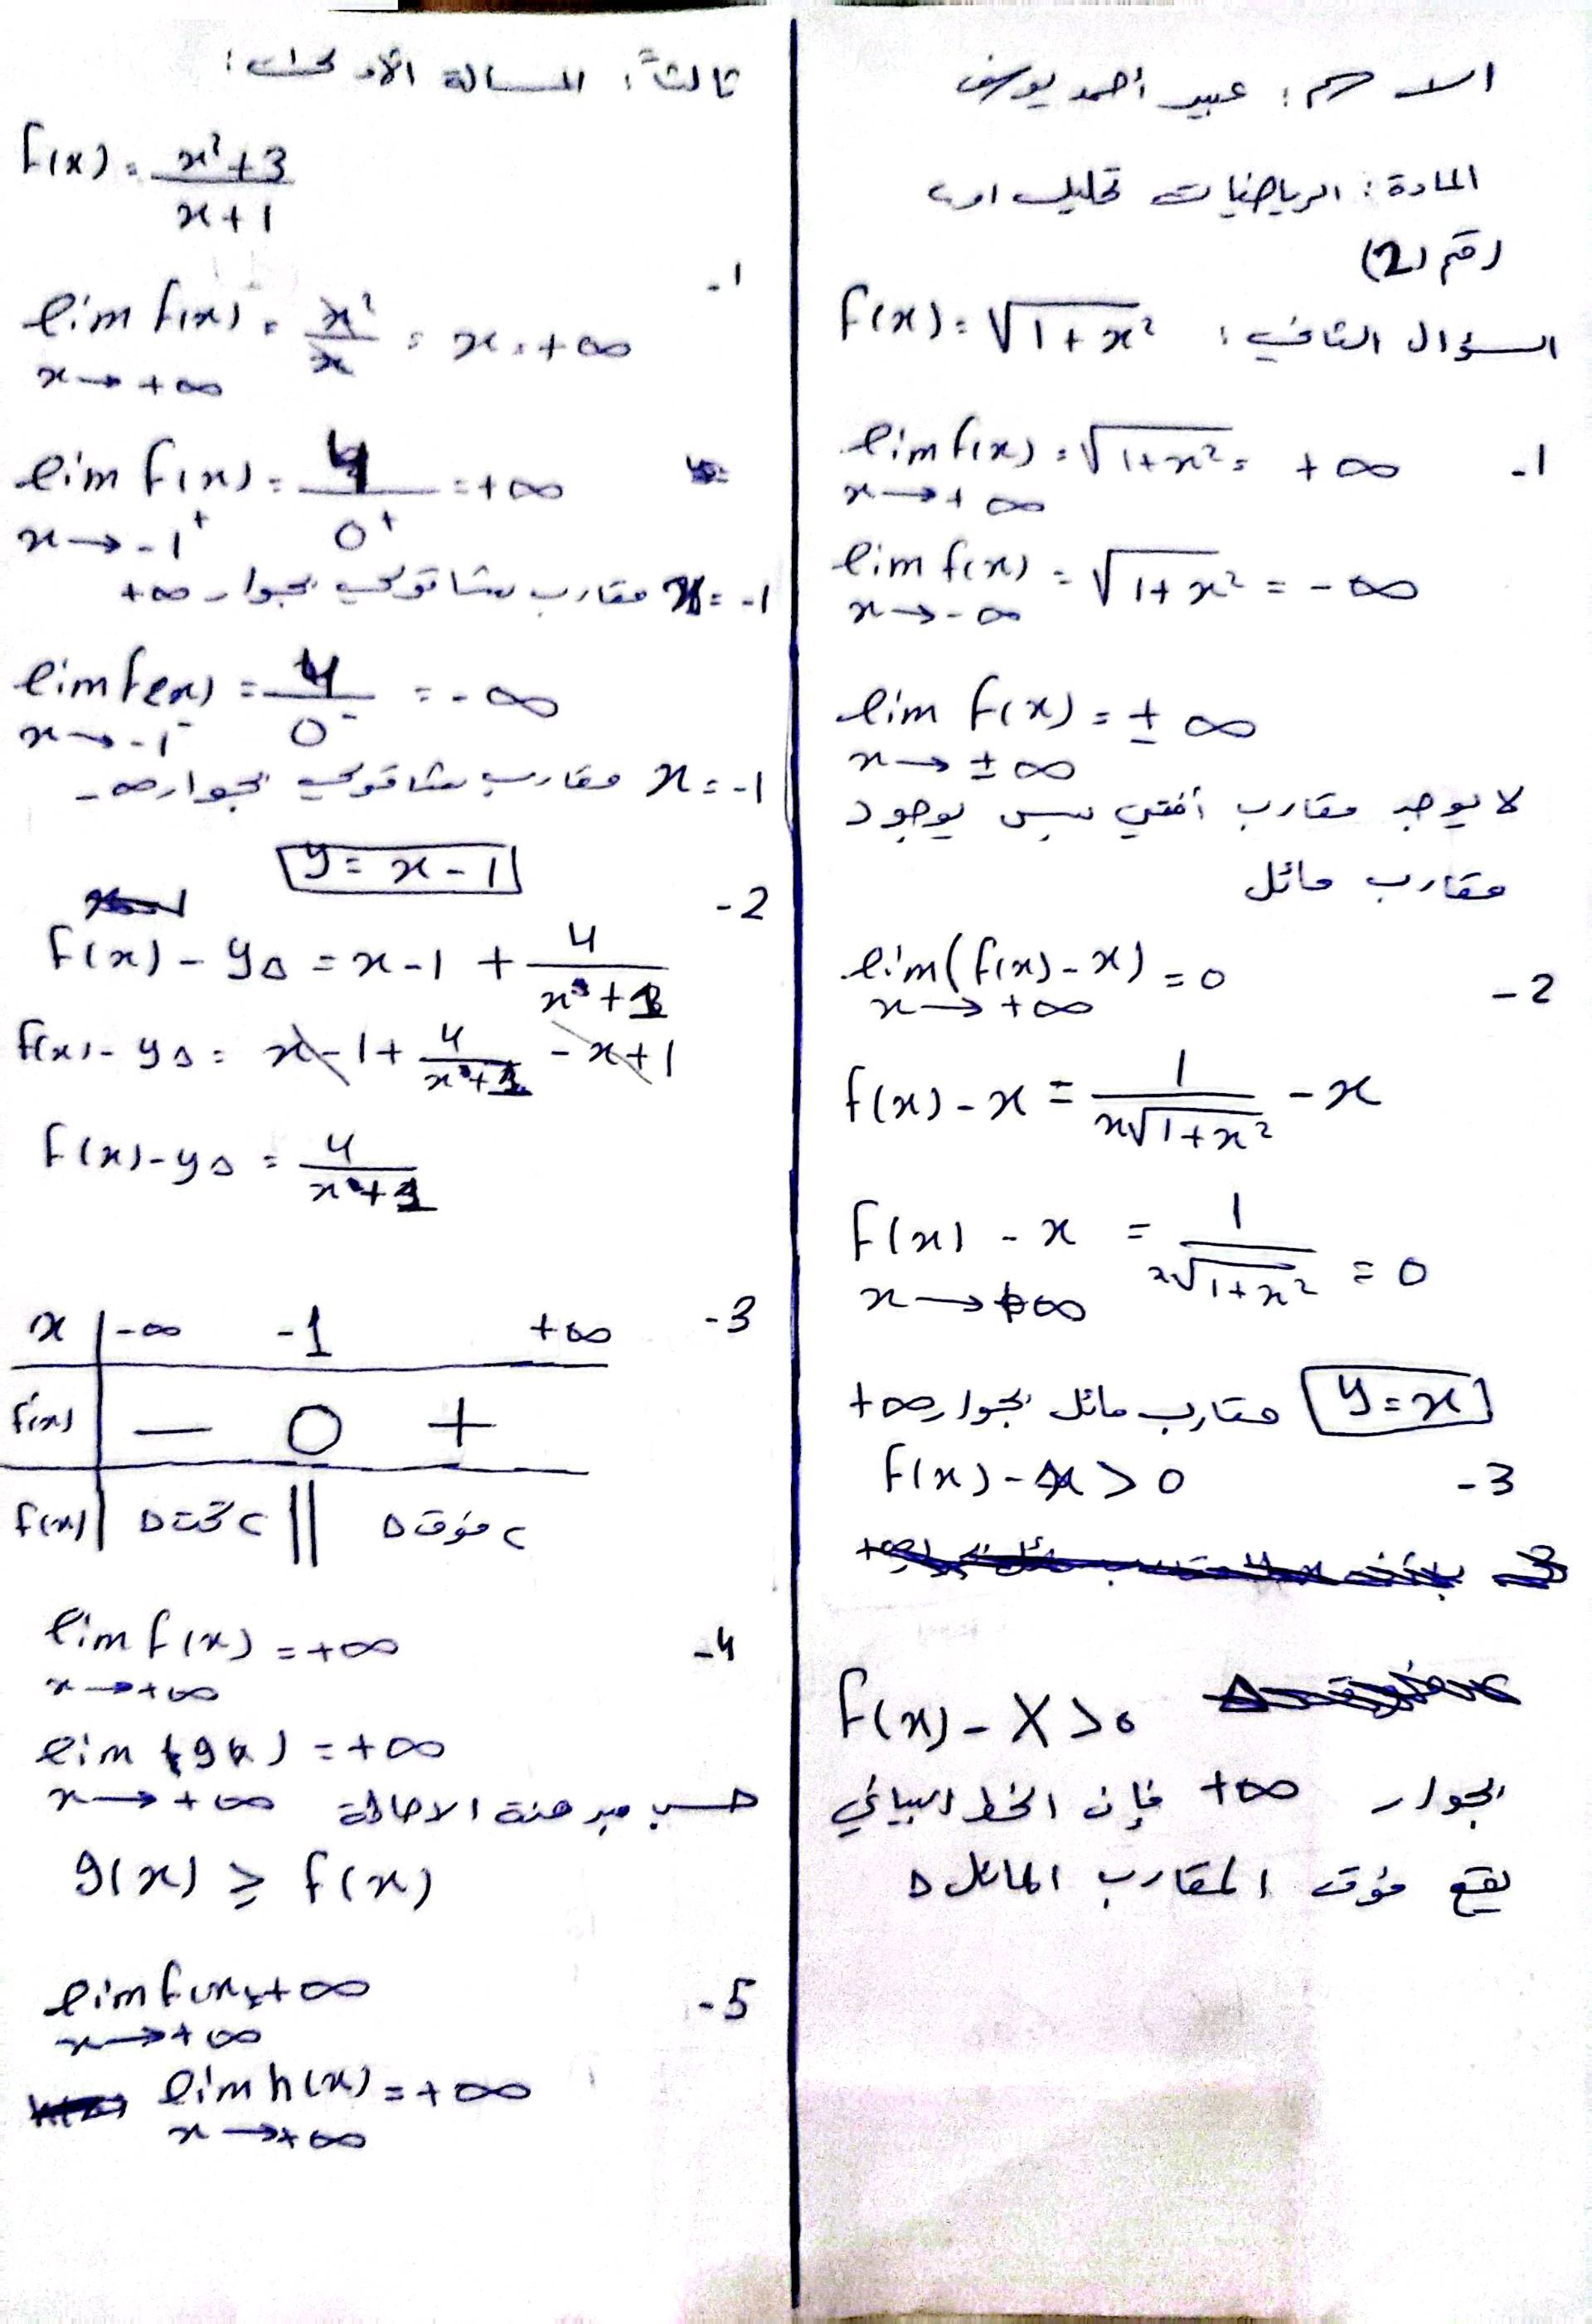 الاسم : عبير أحمد يوسف
المادة : الرياضيات تحليل
رقم (2)
السؤال الثاني : f(x) = √1+x²
-1 lim f(x) = √1+x² = +∞
x → +∞
lim f(x) = √1+x² = -∞
x → -∞
lim f(x) = ± ∞
x → ± ∞
لا يوجد مقارب أفقي بوجود
مقارب مائل
-2 lim (f(x) - x) = 0
x → +∞
f(x) - x = 1/x√1+x² - x
f(x) - x = 1/√1+x² = 0
x → +∞
y = x مقارب مائل بجوار +∞
-3 f(x) - x > 0
f(x) - x > 0
بجوار +∞ فإن الخط البياني
يقع فوق المقارب المائل Δ
ثالثاً : المسالة الأولى :
f(x) = x²+3/x+1
-1
lim f(x) = x²/x = x = +∞
x → +∞
lim f(x) = 4/0⁺ = +∞
x → -1⁺
x = -1 مقارب شاقولي بجوار +∞
lim f(x) = 4/0⁻ = -∞
x → -1⁻
x = -1 مقارب شاقولي بجوار -∞
y = x - 1
-2
f(x) - yΔ = x - 1 + 4/x+1
f(x) - yΔ = x - 1 + 4/x+1 - x + 1
f(x) - yΔ = 4/x+1
-3
x | -∞ -1 +∞
f(x) | - 0 +
f(x) | c تحت Δ || c فوق Δ
-4 lim f(x) = +∞
x → +∞
lim g(x) = +∞
x → +∞ حسب مبرهنة الاحاطة
g(x) ≥ f(x)
-5 lim f(x) = +∞
x → +∞
lim h(x) = +∞
x → +∞